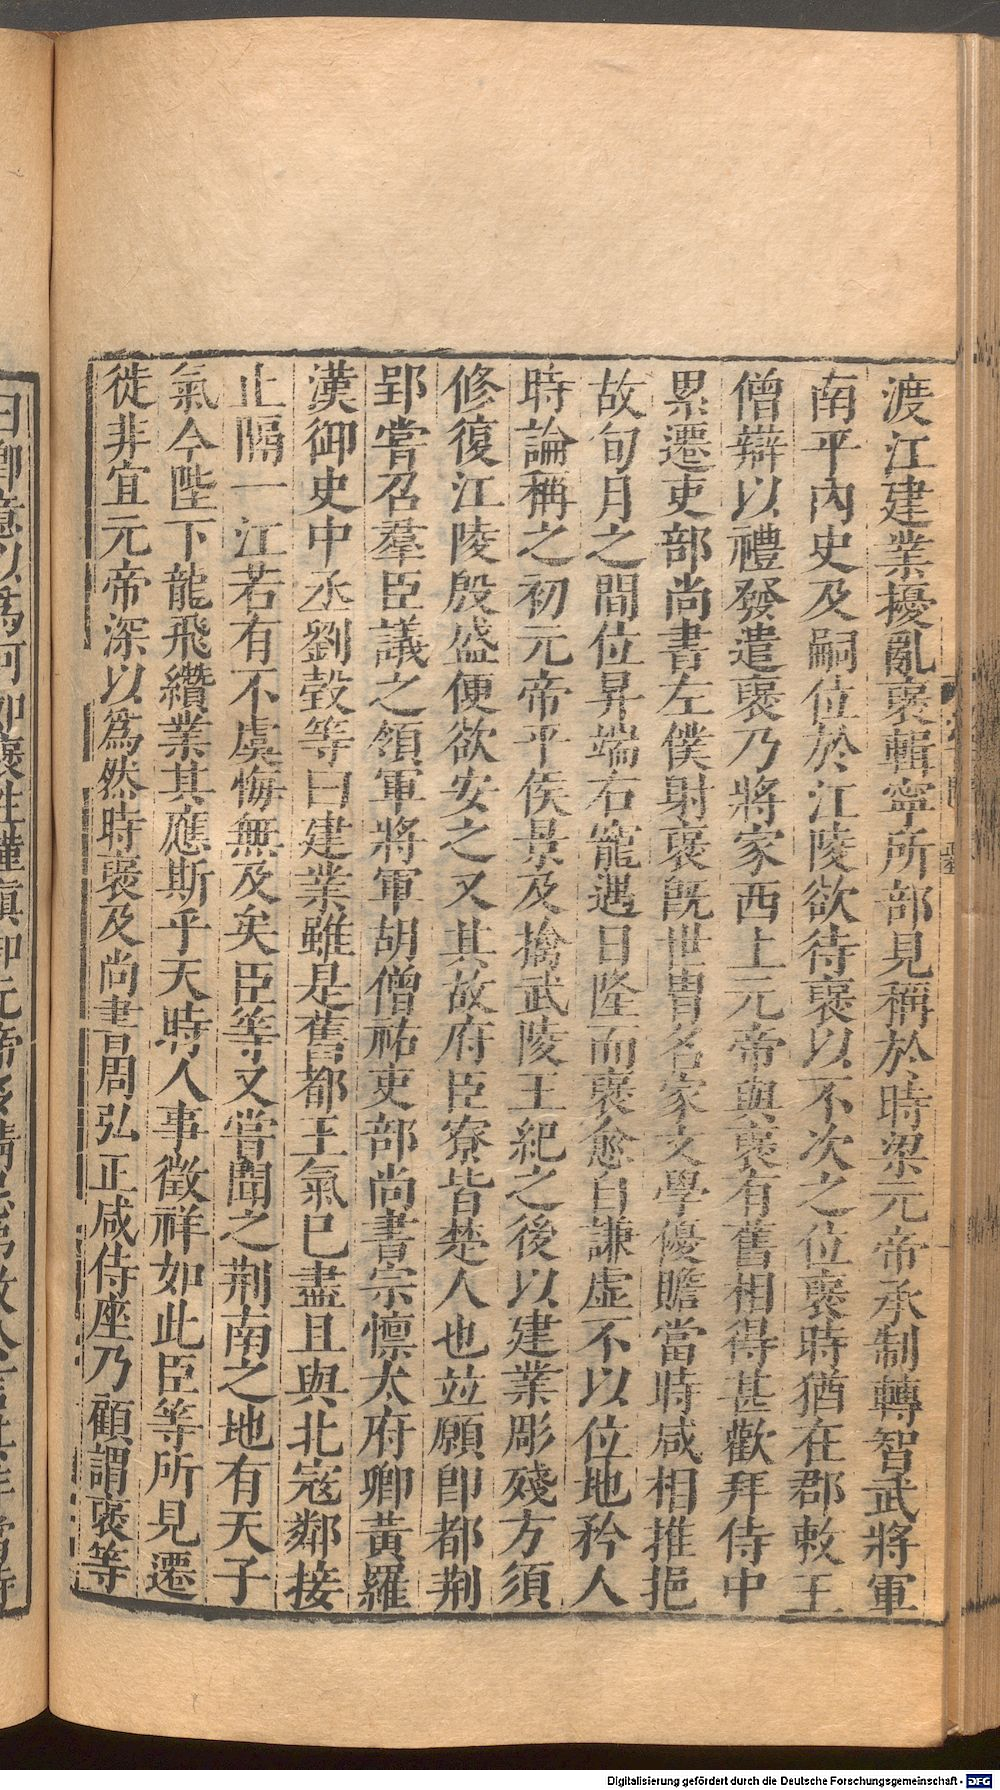 渡江建業擾亂褒輯寧所部見稱於時梁元帝承制轉智武將軍
南平內史及嗣位於江陵欲待褒以不次之位褒時猶在郡敕王
僧辯以禮發遣褒乃將家西上元帝與褒有舊相得甚歡拜侍中
累遷吏部尚書左僕射褒旣世冑名家文學優贍當時咸相推挹
故旬月之間位昇端右寵遇日隆而褒愈自謙虛不以位地矜人
時論稱之初元帝平侯景及擒武陵王紀之後以建業彫殘方須
修復江陵殷盛便欲安之又其故府臣寮皆楚人也並願卽都荆
郢嘗召羣臣議之領軍將軍胡僧祐吏部尚書宗懍太府卿黃羅
漢御史中丞劉瑴等曰建業雖是舊都王氣已盡且與北寇鄰接
止隔一江若有不虞悔無及矣臣等又嘗聞之荆南之地有天子
氣今陛下龍飛纘業其應斯乎天時人事徵祥如此臣等所見遷
徙非宜元帝深以爲然時褒及尚書周弘正咸侍座乃顧謂褒等
Digitalisierung gefördert durch die Deutsche Forschungsgemeinschaft - DFG